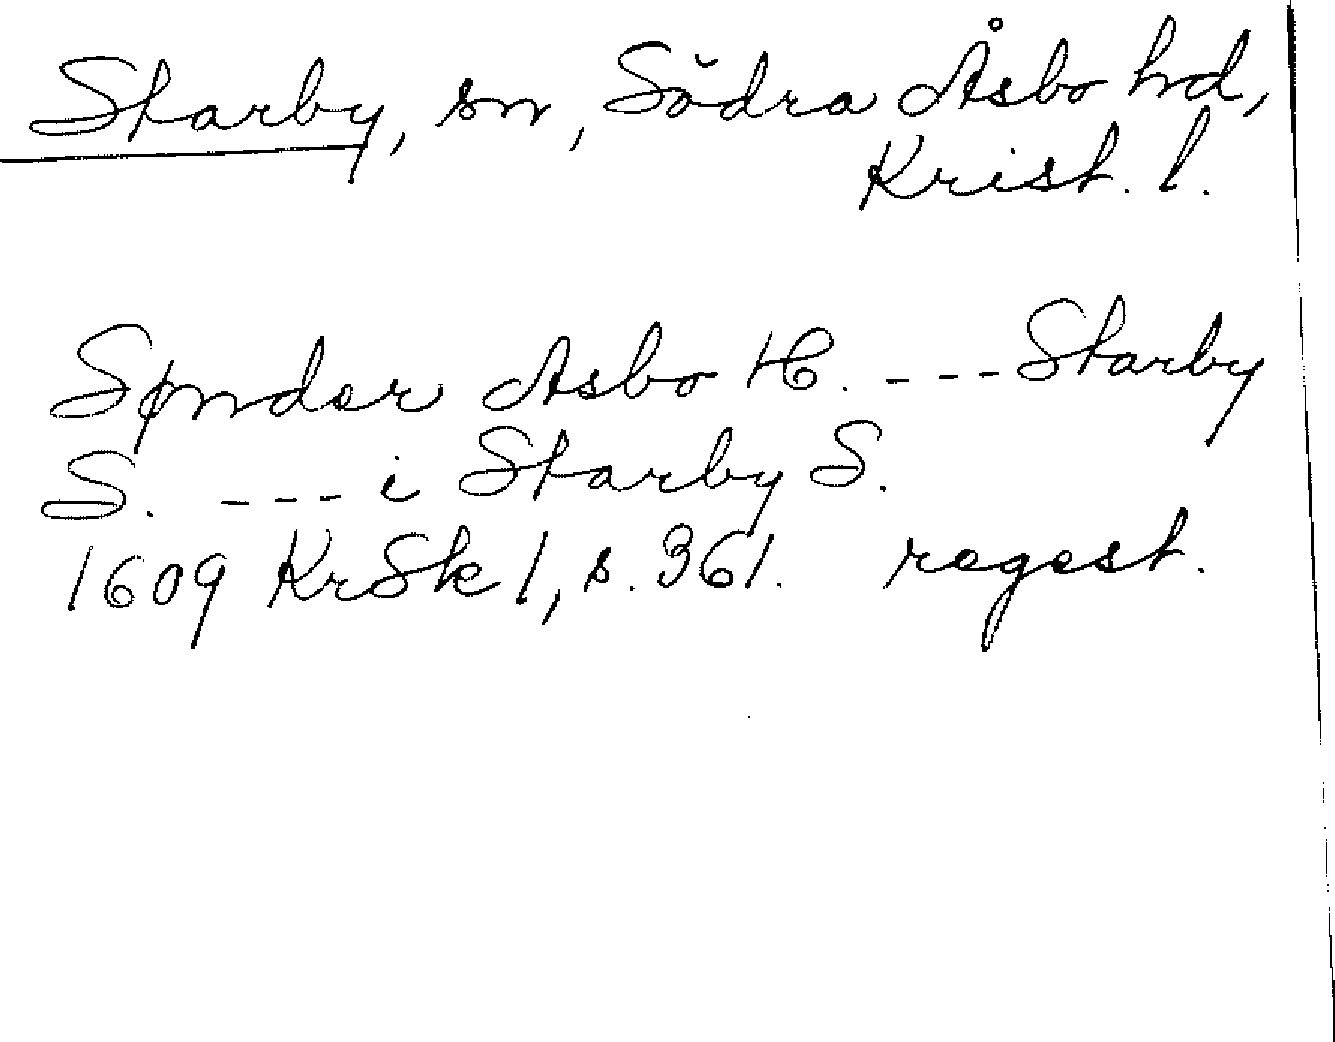 Starby, sn, Södra Åsbo hd,
Krist. l.
Sønder Asbo H. ---Starby
S. --- i Starby S.
1609 KrSk 1, s. 361. regest.